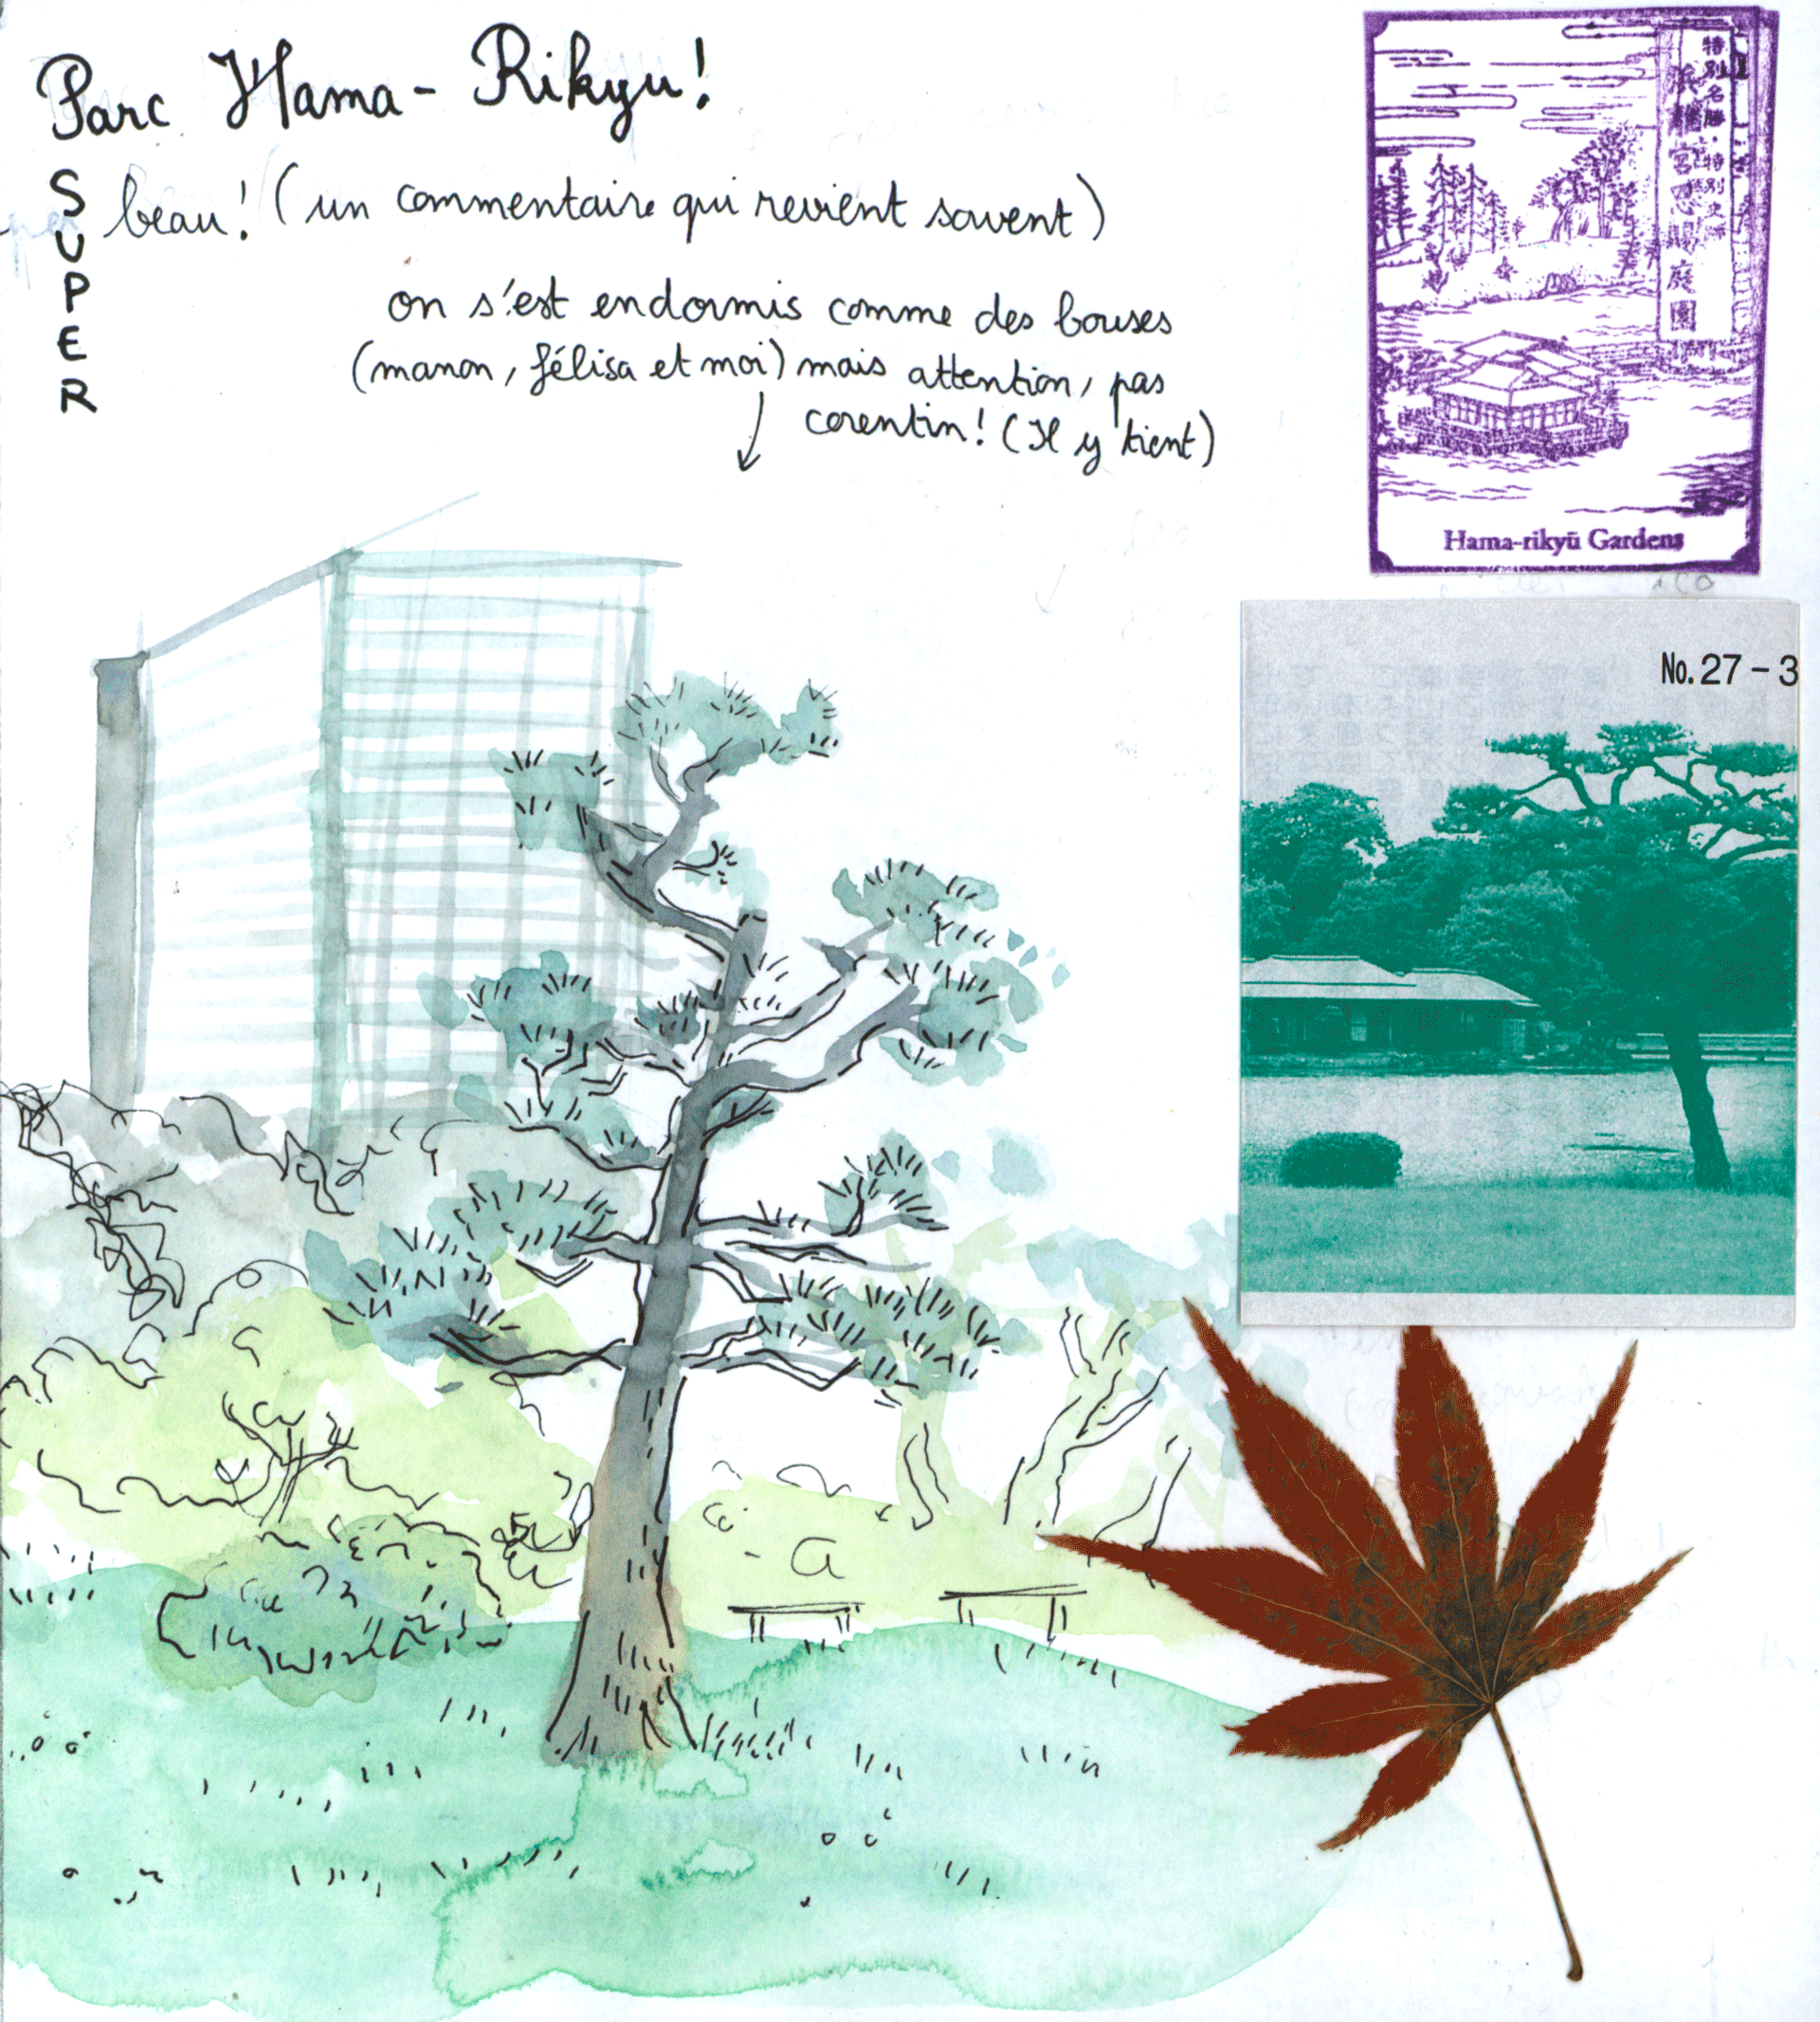 Parc Hama-Rikyu!
SUPER
beau! (un commentaire qui revient souvent)
on s'est endormis comme des bouses
(manon, félisa et moi) mais attention, pas
corentin! (Il y tient)
特別名勝・特別史跡
浜離宮恩賜庭園
Hama-rikyū Gardens
No. 27-3